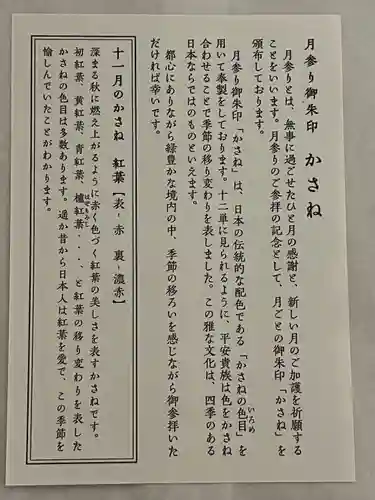 月参り御朱印　かさね
月参りとは、無事に過ごせたひと月の感謝と、新しい月のご加護を祈願する
ことをいいます。月参りのご参拝の記念として、月ごとの御朱印「かさね」を
頒布しております。
月参り御朱印「かさね」は、日本の伝統的な配色である「かさねの色目」を
いろめ
用いて奉製をしております。十二単に見られるように、平安貴族は色をかさね
合わせることで季節の移り変わりを表しました。この雅な文化は、四季のある
日本ならではのものといえます。
都心にありながら緑豊かな境内の中、季節の移ろいを感じながら御参拝いた
だければ幸いです。
十一月のかさね　紅葉【表-赤　裏-濃赤】
深まる秋に燃え上がるように赤く色づく紅葉の美しさを表すかさねです。
初紅葉、黄紅葉、青紅葉、櫨紅葉・・・、と紅葉の移り変わりを表した
はぜもみじ
かさねの色目は多数あります。遥か昔から日本人は紅葉を愛で、この季節を
愉しんでいたことがわかります。